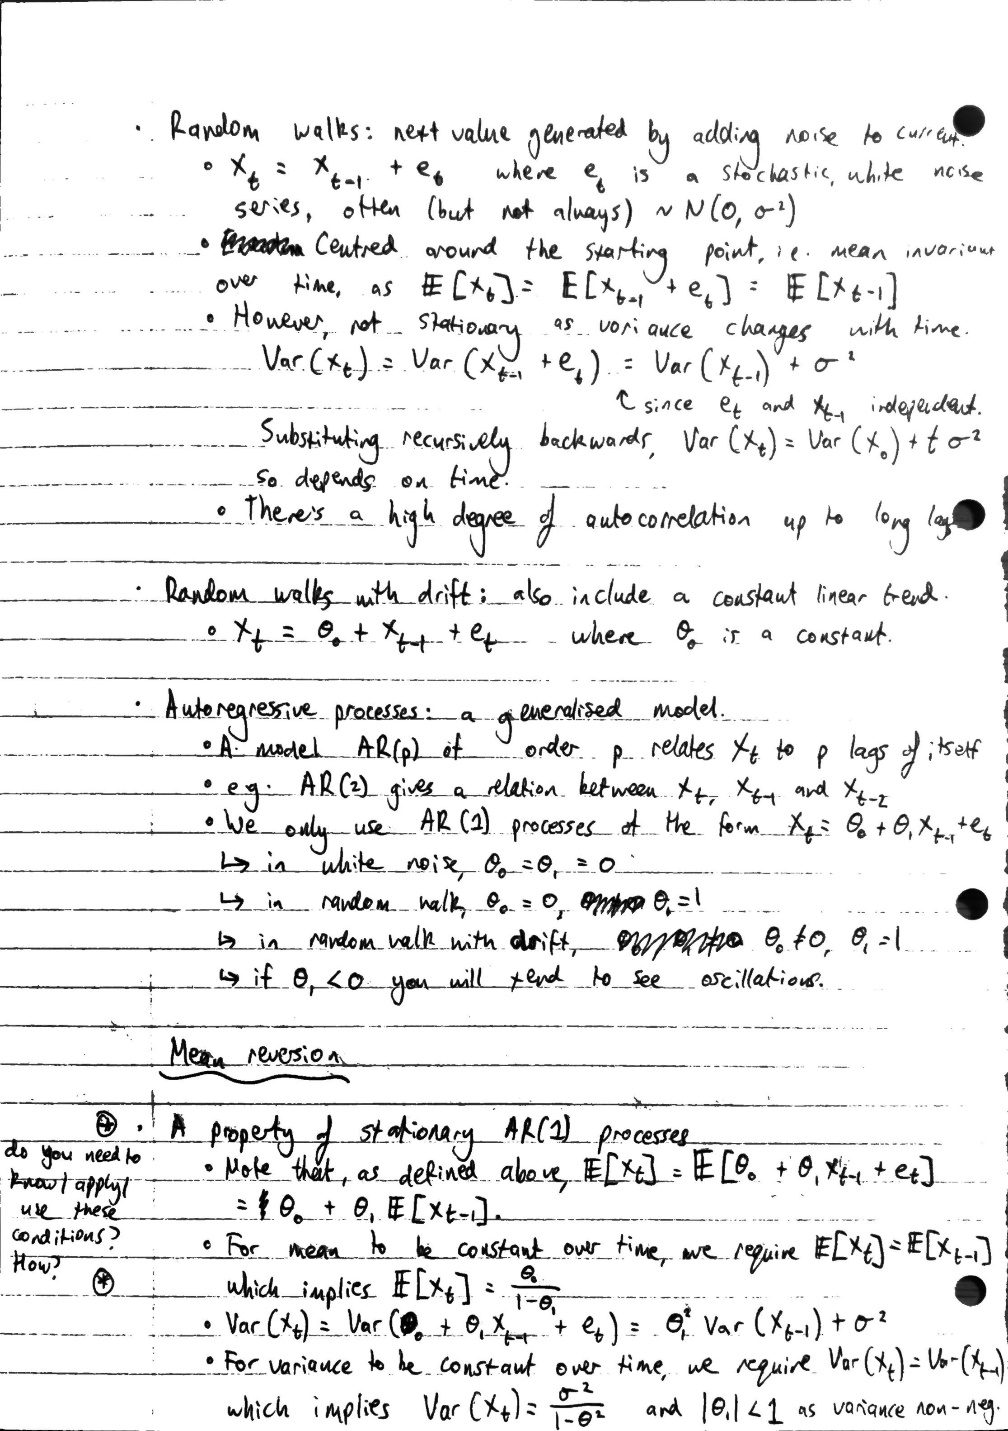 · Random walks: next value generated by adding noise to current.
∘ X_t = X_{t-1} + e_t where e_t is a stochastic, white noise
series, often (but not always) ~ N(0, σ²)
• Centred around the starting point, i.e. mean invariant
over time, as 𝔼[X_t] = E[X_{t-1} + e_t] = 𝔼[X_{t-1}]
• However, not stationary as variance changes with time.
Var(X_t) = Var(X_{t-1} + e_t) = Var(X_{t-1}) + σ²
↑ since e_t and X_{t-1} independent.
Substituting recursively backwards, Var(X_t) = Var(X_0) + tσ²
so depends on time.
∘ There's a high degree of autocorrelation up to long lags
· Random walks with drift: also include a constant linear trend.
∘ X_t = θ_0 + X_{t-1} + e_t where θ_0 is a constant.
· Autoregressive processes: a generalised model.
• A model AR(p) of order p relates X_t to p lags of itself
• e.g. AR(2) gives a relation between X_t, X_{t-1} and X_{t-2}
• We only use AR(1) processes of the form X_t = θ_0 + θ_1 X_{t-1} + e_t
↳ in white noise, θ_0 = θ_1 = 0
↳ in random walk, θ_0 = 0, θ_1 = 1
↳ in random walk with drift, θ_0 ≠ 0, θ_1 = 1
↳ if θ_1 < 0 you will tend to see oscillations.
Mean reversion
⊛ · A property of stationary AR(1) processes
do you need to
know/apply/
use these
conditions?
How?
⊛
• Note that, as defined above, 𝔼[X_t] = 𝔼[θ_0 + θ_1 X_{t-1} + e_t]
= θ_0 + θ_1 𝔼[X_{t-1}].
• For mean to be constant over time, we require 𝔼[X_t] = 𝔼[X_{t-1}]
which implies 𝔼[X_t] = θ_0/(1-θ_1)
• Var(X_t) = Var(θ_0 + θ_1 X_{t-1} + e_t) = θ_1² Var(X_{t-1}) + σ²
• For variance to be constant over time, we require Var(X_t) = Var(X_{t-1})
which implies Var(X_t) = σ²/(1-θ²) and |θ_1| < 1 as variance non-neg.